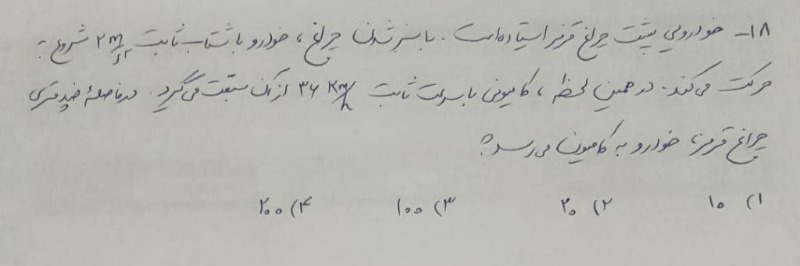 ۱۸- خودرویی پشت چراغ قرمز ایستاده است. با سبز شدن چراغ، خودرو با شتاب ثابت ۲ m/s² شروع به
حرکت می‌کند. در همین لحظه، کامیونی با سرعت ثابت ۳۶ km/h از آن سبقت می‌گیرد. در فاصلهٔ چند متری
چراغ قرمز، خودرو به کامیون می‌رسد؟
۱) ۱۰ ۲) ۲۰ ۳) ۱۰۰ ۴) ۲۰۰